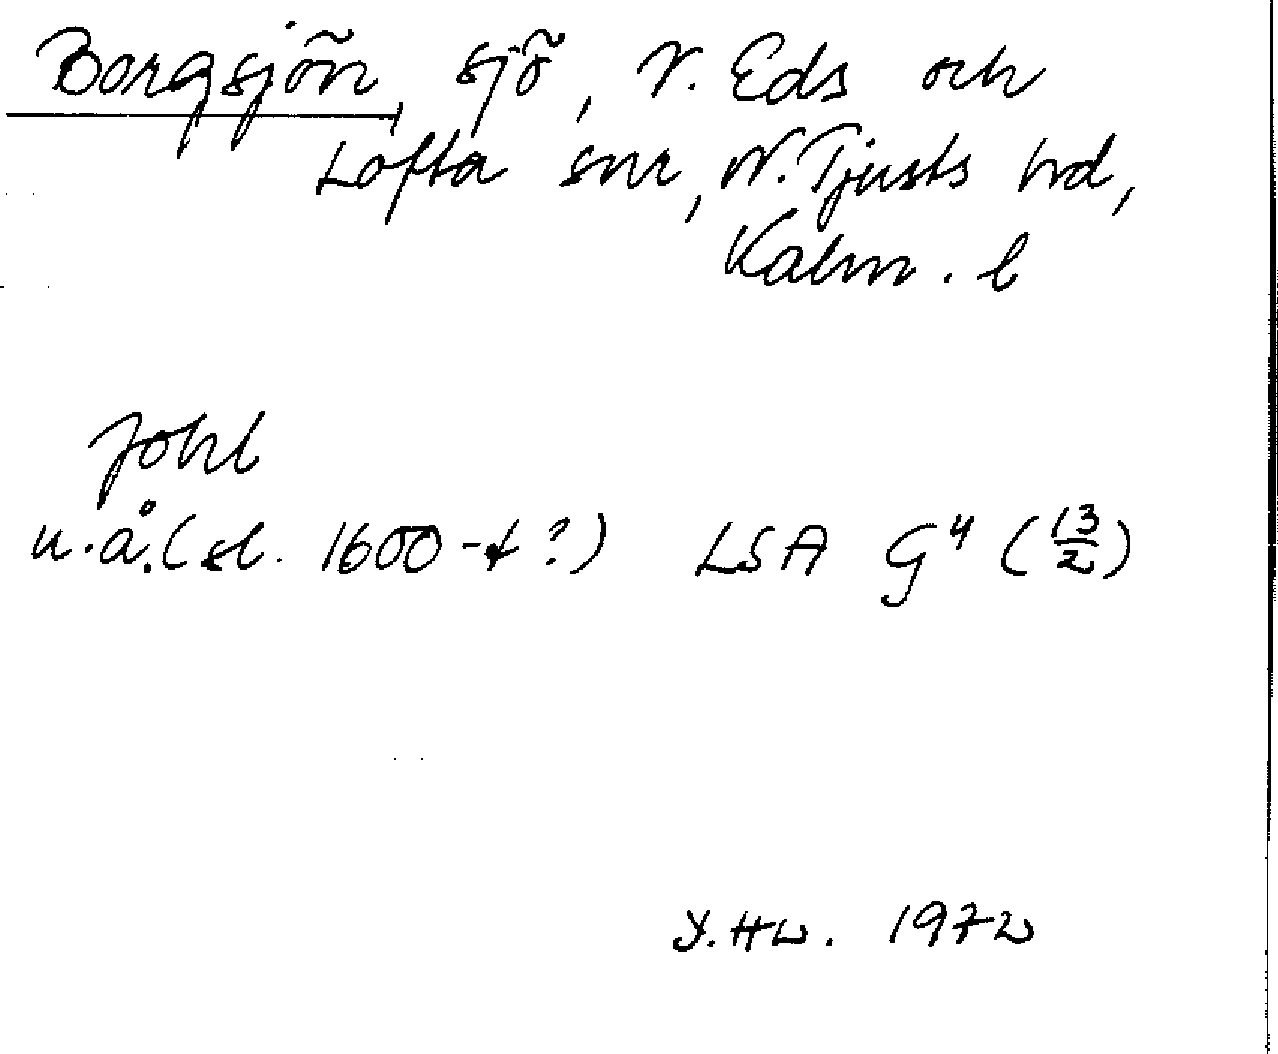 Borgsjön, sjö, V. Eds och
Lofta snr, N. Tjusts hd,
Kalm. l
u.å. (sl. 1600-t?) LSA G⁴ (13/2)
Y. Hw. 1972